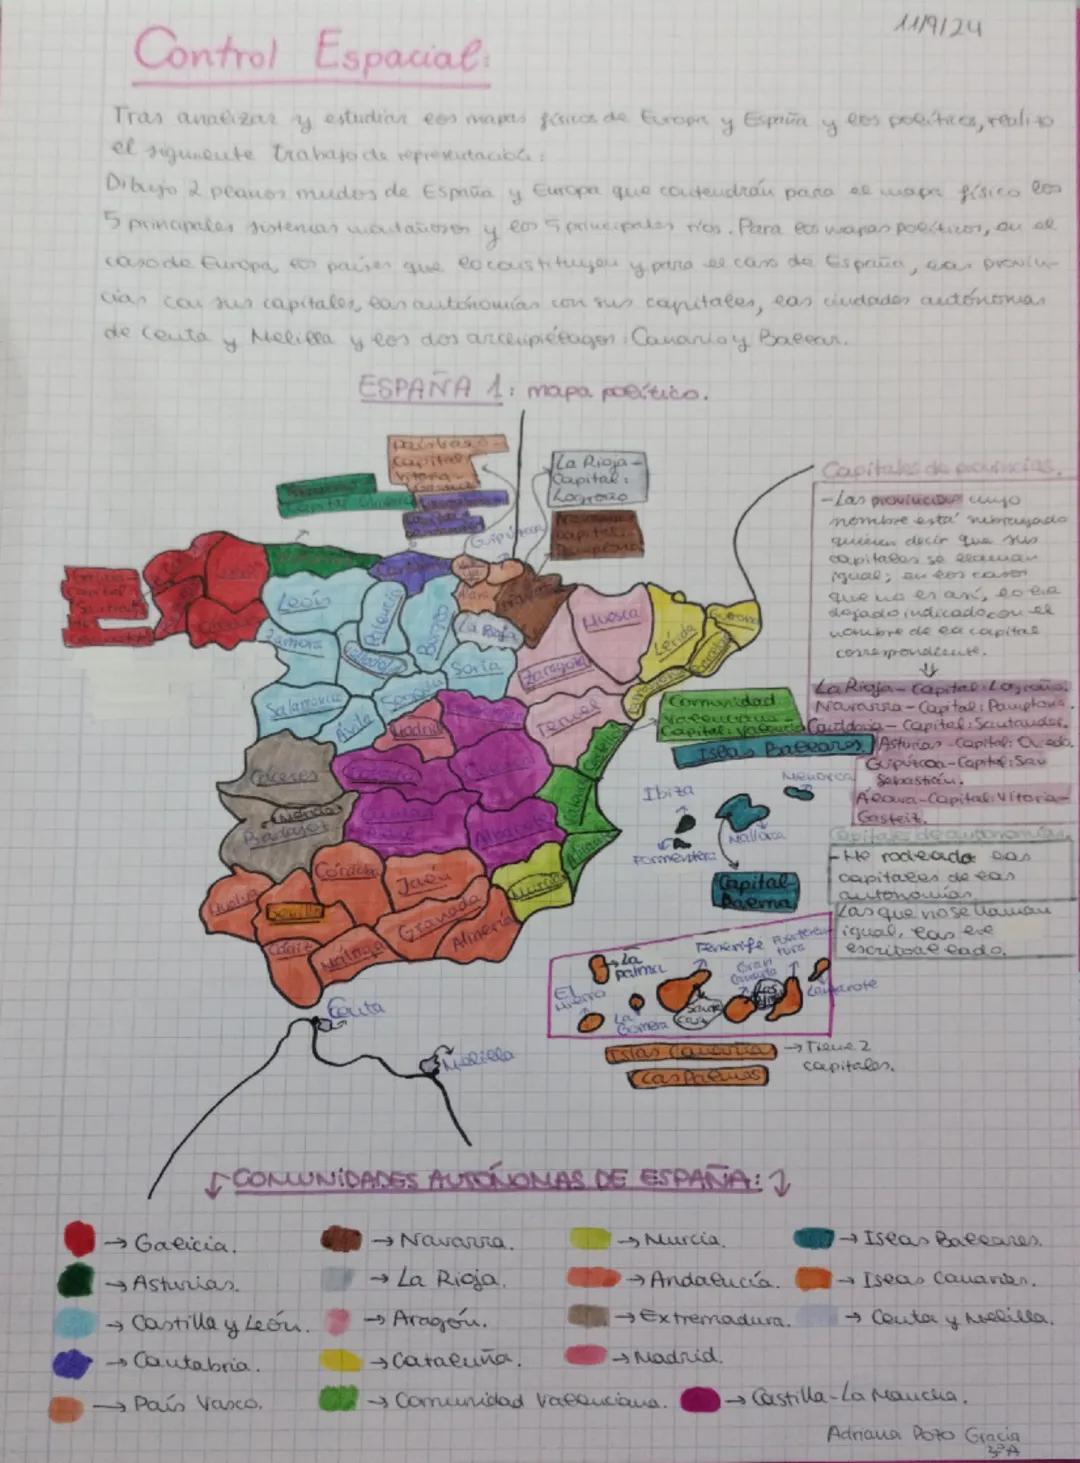 11/9/24
Control Espacial:
Tras analizar y estudiar los mapas físicos de Europa y España y los políticos, realizo
el siguiente trabajo de representación:
Dibujo 2 planos mudos de España y Europa que contendrán para el mapa físico los
5 principales sistemas montañosos y los 5 principales ríos. Para los mapas políticos, en el
caso de Europa, los países que lo constituyen y para el caso de España, las provin-
cias con sus capitales, las autonomías con sus capitales, las ciudades autónomas
de Ceuta y Melilla y los dos archipiélagos: Canario y Balear.
ESPAÑA 1: mapa político.
País Vasco-
Capital:
Vitoria-
La Rioja-
Capital:
Logroño
Capital:
Navarra-
Capital:
Pamplona
Galicia-
Capital:
Guipúzcoa
Lugo
Cantabria
Álava
Navarra
León
Palencia
Burgos
La Rioja
Huesca
Lérida
Gerona
Zamora
Valladolid
Soria
Zaragoza
Salamanca
Segovia
Ávila
Madrid
Teruel
Castellón
Comunidad
Valenciana-
Capital: Valencia
Cáceres
Cuenca
Valencia
Mérida
Badajoz
Ciudad
Real
Albacete
Alicante
Huelva
Sevilla
Córdoba
Jaén
Murcia
Cádiz
Málaga
Granada
Almería
Ceuta
Melilla
Islas Baleares
Ibiza
Menorca
Formentera
Mallorca
Capital-
Palma
La
Palma
Tenerife
Fuerteven-
tura
El
Hierro
Gran
Canaria
Lanzarote
La
Gomera
Santa
Cruz
Islas Canarias
Las Palmas
→ Tiene 2
capitales.
Capitales de provincias.
- Las provincias cuyo
nombre está subrayado
quieren decir que sus
capitales se llaman
igual; en los casos
que no es así, lo he
dejado indicado con el
nombre de la capital
correspondiente.
La Rioja - Capital: Logroño.
Navarra - Capital: Pamplona.
Cantabria - Capital: Santander.
Asturias - Capital: Oviedo.
Guipúzcoa - Capital: San
Sebastián.
Álava - Capital: Vitoria-
Gasteiz.
Capitales de autonomías
- He rodeado las
capitales de las
autonomías.
Las que no se llaman
igual, las he
escrito al lado.
COMUNIDADES AUTÓNOMAS DE ESPAÑA:
→ Galicia.
→ Navarra.
→ Murcia.
→ Islas Baleares.
→ Asturias.
→ La Rioja.
→ Andalucía.
→ Islas Canarias.
→ Castilla y León.
→ Aragón.
→ Extremadura.
→ Ceuta y Melilla.
→ Cantabria.
→ Cataluña.
→ Madrid.
→ País Vasco.
→ Comunidad Valenciana.
→ Castilla-La Mancha.
Adriana Pozo Gracia
3ºA